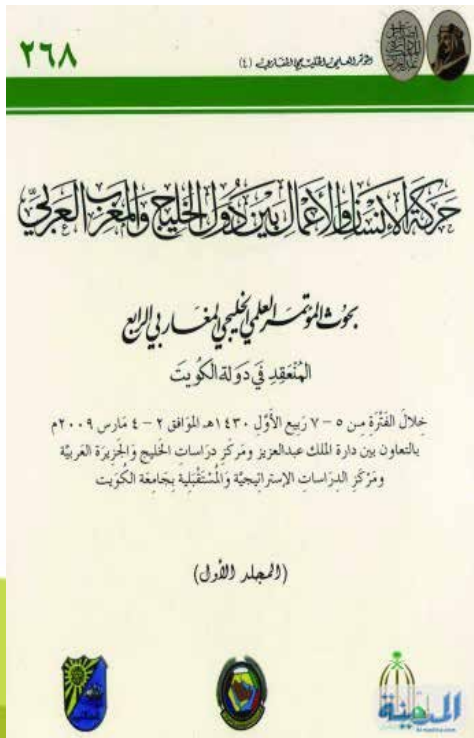 ٢٦٨
المؤتمر العلمي الخليجي المغاربي (٤)
حركة الإنسان والأعمال بين دول الخليج والمغرب العربي
بحوث المؤتمر العلمي الخليجي المغاربي الرابع
المُنْعَقِد في دَولَة الكُويتَ
خِلَال الفَتْرَة مِن ٥ - ٧ رَبيع الأَوَّل ١٤٣٠هـ الموَافق ٢ - ٤ مَارس ٢٠٠٩م
بالتعاون بين دارة الملك عبدالعزيز ومَركز دراسَات الخليج وَالجَزيرَة العَربيَّة
ومَرْكَز الدِرَاسَات الإستراتيجيَّة وَالمُسْتَقْبَلية بجَامعَة الكُوَيت
(المجلد الأول)
المدينة